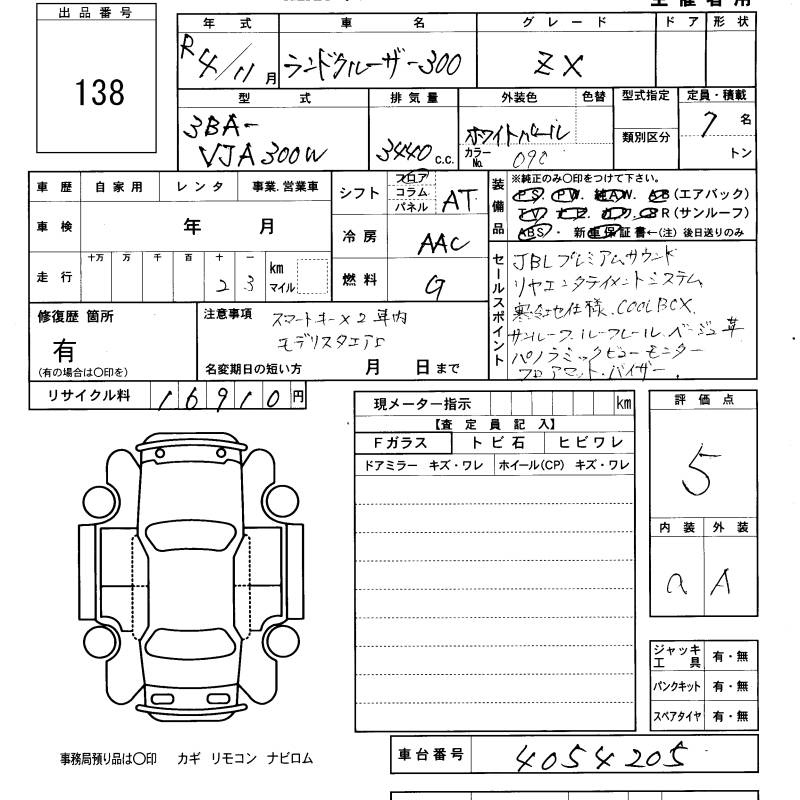 出品番号
138
年式 車名 グレード ドア 形状
R4/11月 ランドクルーザー300 ZX
型式 排気量 外装色 色替 型式指定 定員・積載
3BA-
VJA300W 3440c.c. ホワイトパール 7名
カラーNo. 090 類別区分 トン
車歴 自家用 レンタ 事業.営業車
車検 年 月
走行 十万 万 千 百 十 一 km マイル
23
シフト フロア コラム パネル AT
冷房 AAC
燃料 G
装備品
※純正のみ〇印をつけて下さい。
PS. PW. 純AW. AB(エアバック)
TV ナビ. カワ. SR(サンルーフ)
ABS・新車保証書←(注)後日送りのみ
セールスポイント
JBLプレミアムサウンド
リヤエンタテイメントシステム
寒冷地仕様. COOLBOX
サンルーフ.ルーフレール.ベージュ革
パノラミックビューモニター
フロアマット.バイザー.
修復歴 箇所
有
(有の場合は〇印を)
注意事項 スマートキー×2 車内
モデリスタエアロ
名変期日の短い方 月 日まで
リサイクル料 16910円
現メーター指示 km
【査定員記入】
Fガラス トビ石 ヒビワレ
ドアミラー キズ・ワレ ホイール(CP) キズ・ワレ
評価点
5
内装 外装
a A
ジャッキ工具 有・無
パンクキット 有・無
スペアタイヤ 有・無
事務局預り品は〇印 カギ リモコン ナビロム
車台番号 4054205